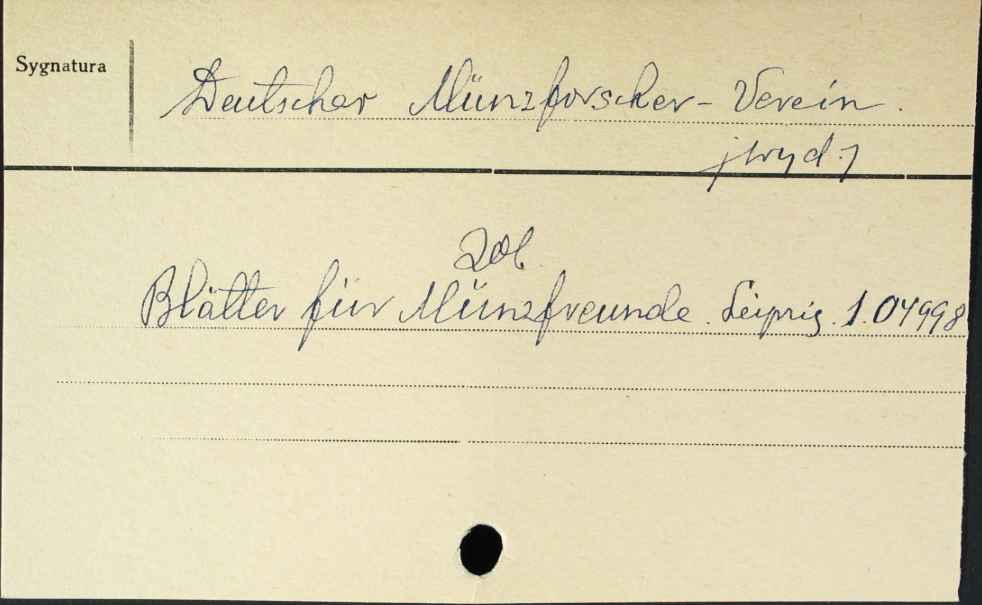 Sygnatura
Deutscher Münzforscher-Verein.
/wyd./
zob.
Blätter für Münzfreunde. Leipzig. 1.04998